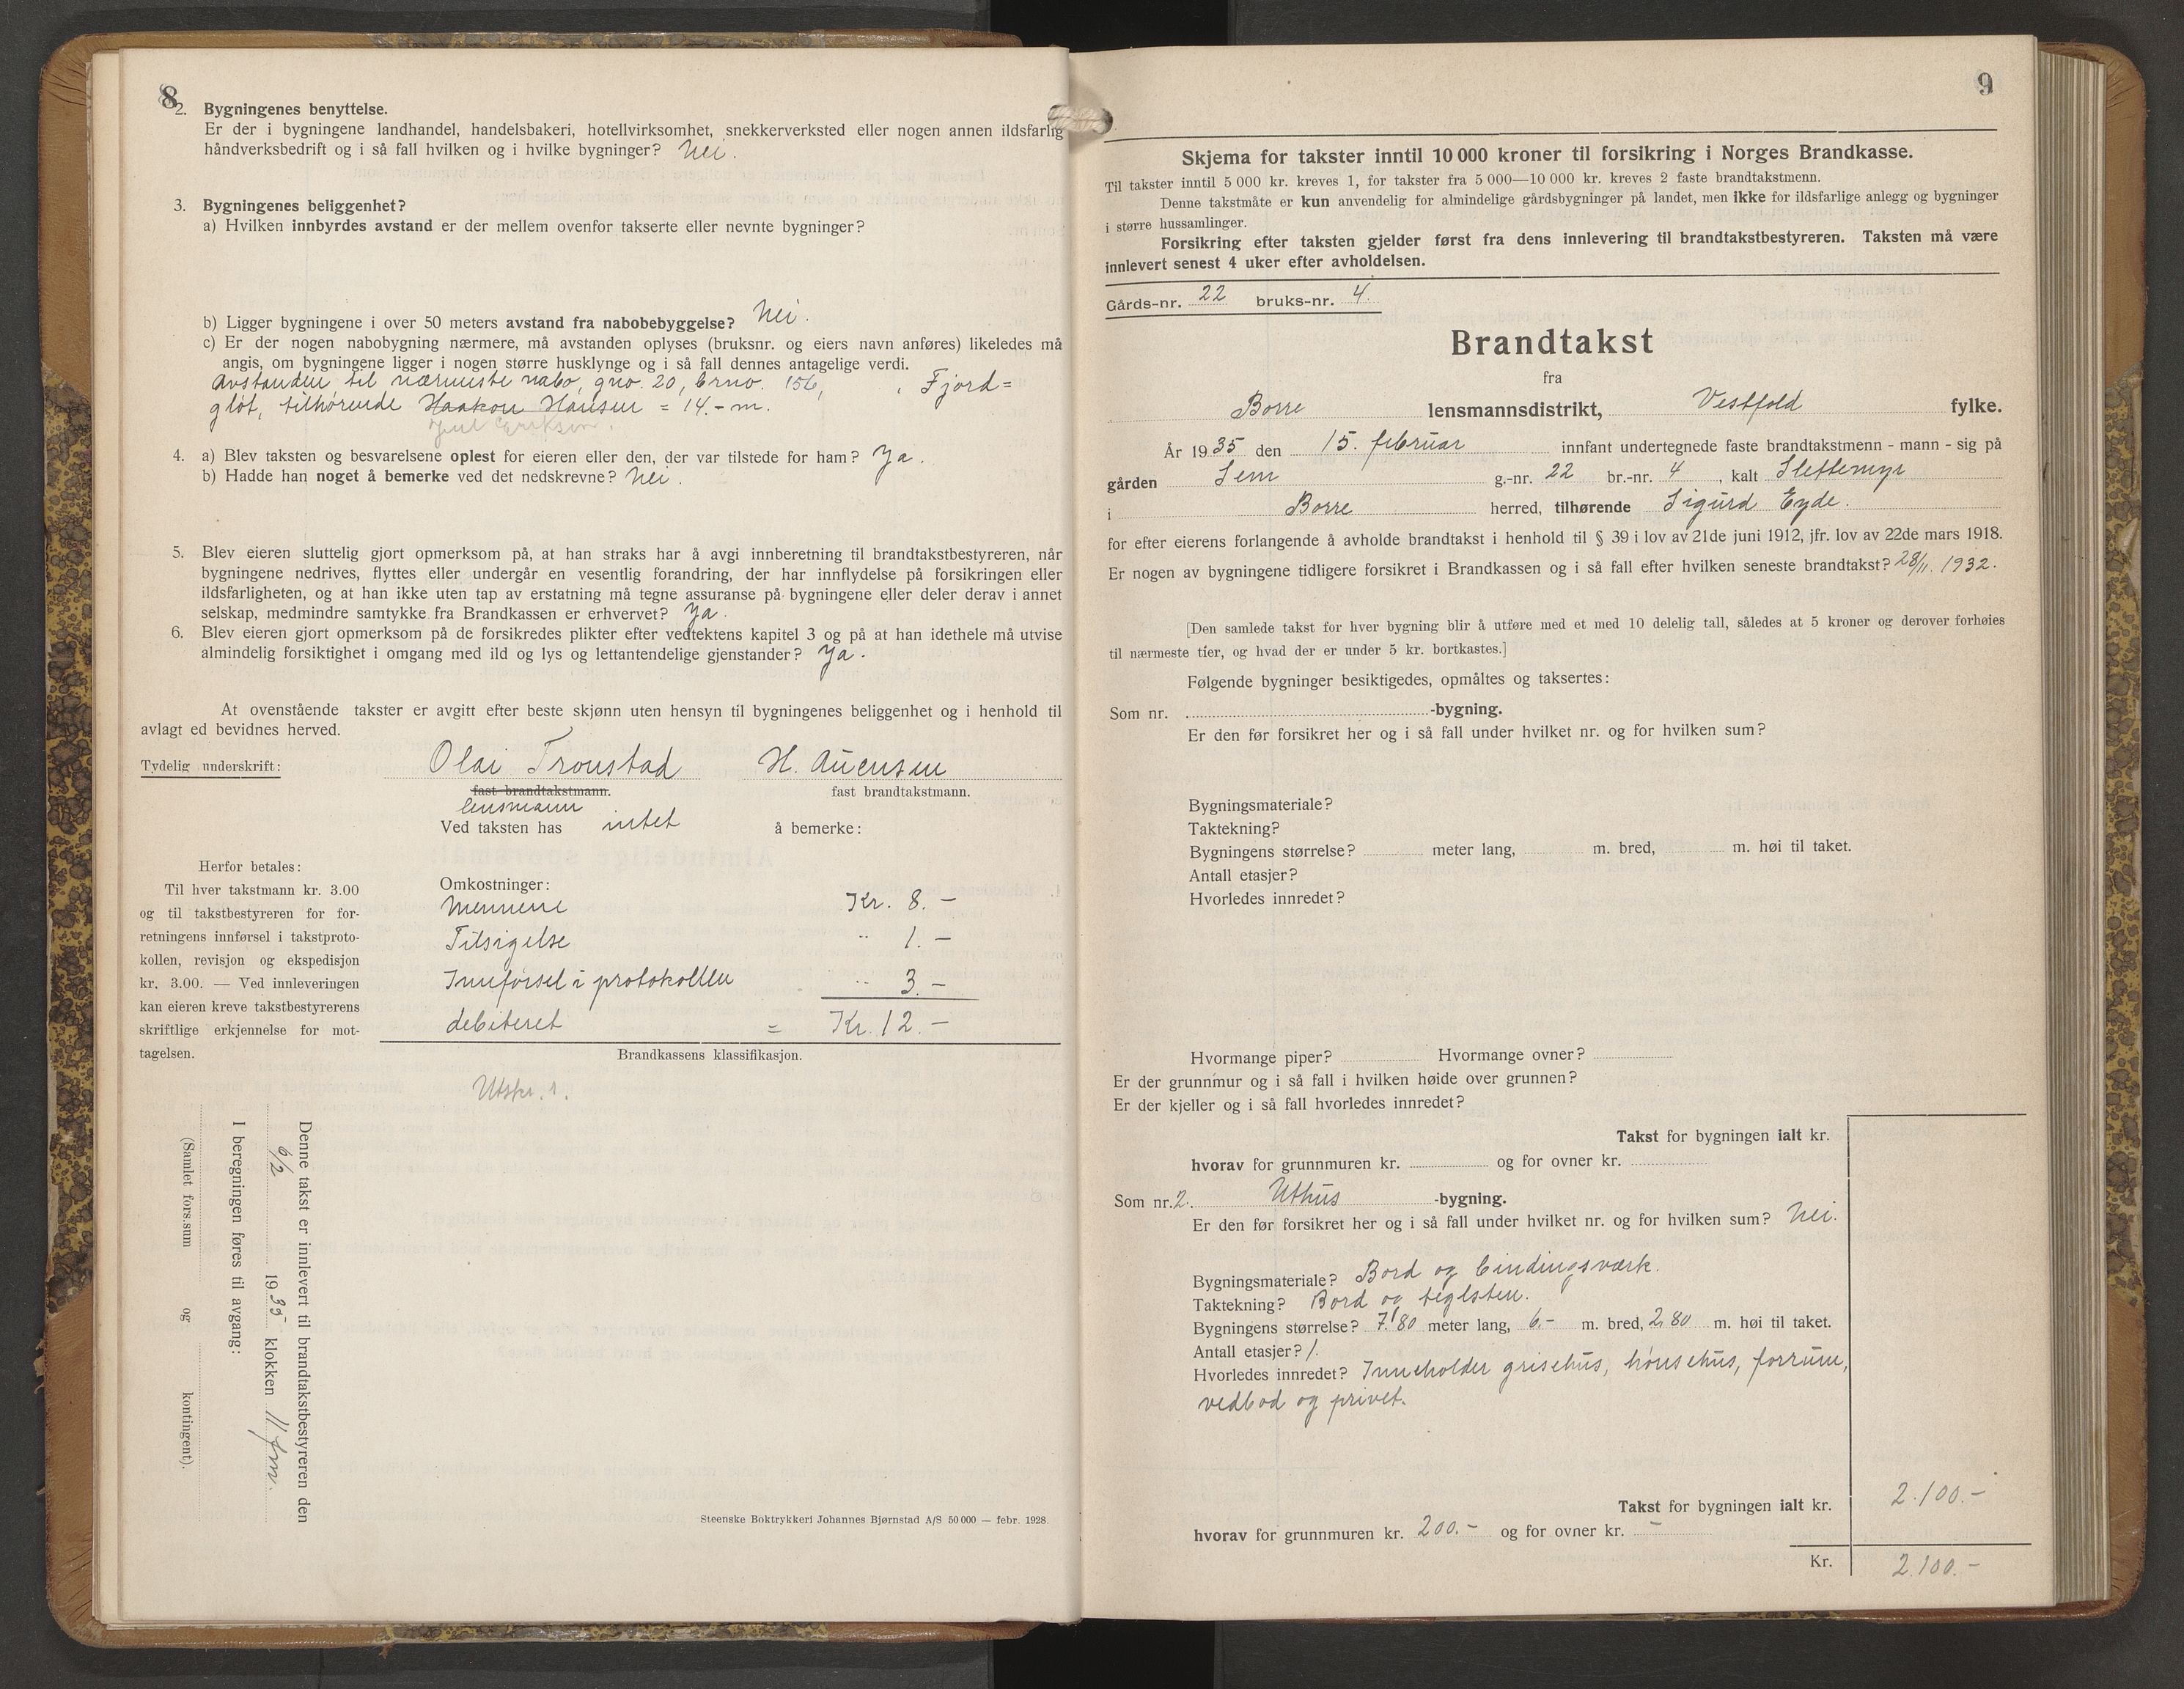 8
2. Bygningenes benyttelse.
Er der i bygningene landhandel, handelsbakeri, hotellvirksomhet, snekkerverksted eller nogen annen ildsfarlig
håndverksbedrift og i så fall hvilken og i hvilke bygninger? Nei.
3. Bygningenes beliggenhet?
a) Hvilken innbyrdes avstand er der mellem ovenfor takserte eller nevnte bygninger?
b) Ligger bygningene i over 50 meters avstand fra nabobebyggelse? Nei.
c) Er der nogen nabobygning nærmere, må avstanden oplyses (bruksnr. og eiers navn anføres) likeledes må
angis, om bygningene ligger i nogen større husklynge og i så fall dennes antagelige verdi.
Avstanden til nærmeste nabo, gno. 20, brno. 156, , Fjord=
gløt, tilhørende Haakon Hansen = 14.- m.
4. a) Blev taksten og besvarelsene oplest for eieren eller den, der var tilstede for ham? Ja.
b) Hadde han noget å bemerke ved det nedskrevne? Nei.
5. Blev eieren sluttelig gjort opmerksom på, at han straks har å avgi innberetning til brandtakstbestyreren, når
bygningene nedrives, flyttes eller undergår en vesentlig forandring, der har innflydelse på forsikringen eller
ildsfarligheten, og at han ikke uten tap av erstatning må tegne assuranse på bygningene eller deler derav i annet
selskap, medmindre samtykke fra Brandkassen er erhvervet? Ja.
6. Blev eieren gjort opmerksom på de forsikredes plikter efter vedtektens kapitel 3 og på at han idethele må utvise
almindelig forsiktighet i omgang med ild og lys og lettantendelige gjenstander? Ja.
At ovenstående takster er avgitt efter beste skjønn uten hensyn til bygningenes beliggenhet og i henhold til
avlagt ed bevidnes herved.
Tydelig underskrift: Olai Tronstad H. Auensen
fast brandtakstmann. fast brandtakstmann.
lensmann
Ved taksten has intet å bemerke:
Herfor betales:
Til hver takstmann kr. 3.00
og til takstbestyreren for for-
retningens innførsel i takstproto-
kollen, revisjon og ekspedisjon
kr. 3.00. — Ved innleveringen
kan eieren kreve takstbestyrerens
skriftlige erkjennelse for mot-
tagelsen.
Omkostninger:
Mennene Kr. 8.-
Tilsigelse " 1.-
Innførsel i protokollen " 3.-
debiteret = Kr. 12.-
Brandkassens klassifikasjon.
Utskr. 1.
Denne takst er innlevert til brandtakstbestyreren den
6/2 1935 klokken 11 fm.
I beregningen føres til avgang:
(Samlet fors.sum og kontingent).
Steenske Boktrykkeri Johannes Bjørnstad A/S 50 000 — febr. 1928.
9
Skjema for takster inntil 10 000 kroner til forsikring i Norges Brandkasse.
Til takster inntil 5 000 kr. kreves 1, for takster fra 5 000—10 000 kr. kreves 2 faste brandtakstmenn.
Denne takstmåte er kun anvendelig for almindelige gårdsbygninger på landet, men ikke for ildsfarlige anlegg og bygninger
i større hussamlinger.
Forsikring efter taksten gjelder først fra dens innlevering til brandtakstbestyreren. Taksten må være
innlevert senest 4 uker efter avholdelsen.
Gårds-nr. 22 bruks-nr. 4.
Brandtakst
fra
Borre lensmannsdistrikt, Vestfold fylke.
År 1935 den 15. februar innfant undertegnede faste brandtakstmenn - mann - sig på
gården Sem g.-nr. 22 br.-nr. 4, kalt Slettemyr
i Borre herred, tilhørende Sigurd Eyde.
for efter eierens forlangende å avholde brandtakst i henhold til § 39 i lov av 21de juni 1912, jfr. lov av 22de mars 1918.
Er nogen av bygningene tidligere forsikret i Brandkassen og i så fall efter hvilken seneste brandtakst? 28/11. 1932.
[Den samlede takst for hver bygning blir å utføre med et med 10 delelig tall, således at 5 kroner og derover forhøies
til nærmeste tier, og hvad der er under 5 kr. bortkastes.]
Følgende bygninger besiktigedes, opmåltes og taksertes:
Som nr. -bygning.
Er den før forsikret her og i så fall under hvilket nr. og for hvilken sum?
Bygningsmateriale?
Taktekning?
Bygningens størrelse? meter lang, m. bred, m. høi til taket.
Antall etasjer?
Hvorledes innredet?
Hvormange piper? Hvormange ovner?
Er der grunnmur og i så fall i hvilken høide over grunnen?
Er der kjeller og i så fall hvorledes innredet?
Takst for bygningen ialt kr.
hvorav for grunnmuren kr. og for ovner kr.
Som nr. 2. Uthus -bygning.
Er den før forsikret her og i så fall under hvilket nr. og for hvilken sum? Nei.
Bygningsmateriale? Bord og bindingsværk.
Taktekning? Bord og teglsten.
Bygningens størrelse? 7.80 meter lang, 6.- m. bred, 2.80 m. høi til taket.
Antall etasjer? 1.
Hvorledes innredet? Inneholder grisehus, hønsehus, forrum,
vedbod og privet.
Takst for bygningen ialt kr. 2.100.-
hvorav for grunnmuren kr. 200.- og for ovner kr. -
Kr. 2.100.-